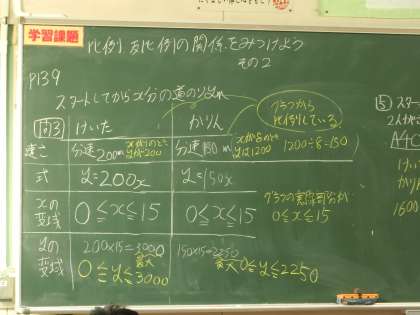 学習課題
比例、反比例の関係をみつけよう
その2
P139
スタートしてからx分の道のりym
グラフから
比例している
問3 けいた かりん
速さ 分速200m xが1のとき yが200 分速150m xが8のとき yは1200 1200÷8=150
式 y=200x y=150x
xの変域 0≦x≦15 0≦x≦15
グラフの実線部分が
0≦x≦15
yの変域 200×15=3000 150×15=2250
最大 最大
0≦y≦3000 0≦y≦2250
⑤ スター
2人が
けい
かり
1600